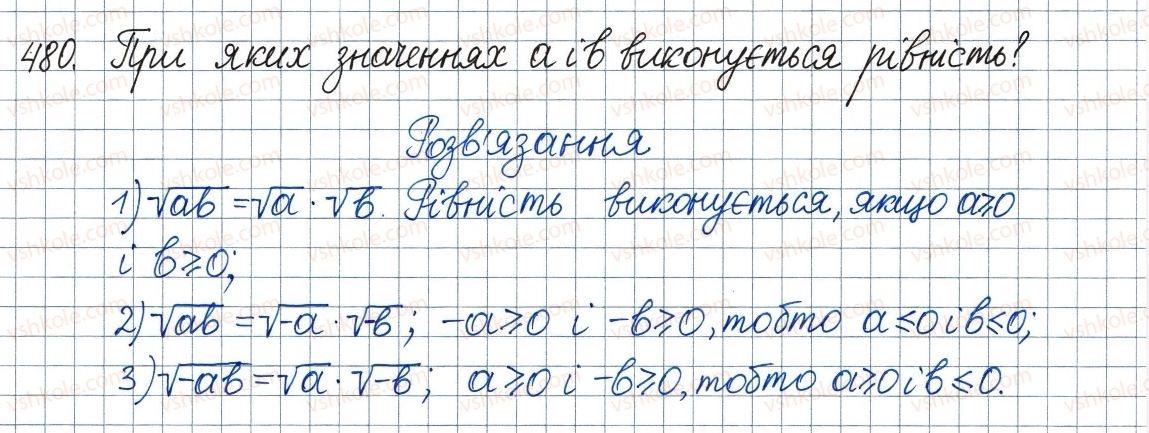 480. При яких значеннях a і b виконується рівність?
Розв'язання
1) √ab = √a · √b. Рівність виконується, якщо a≥0
і b≥0;
2) √ab = √-a · √-b; -a≥0 і -b≥0, тобто a≤0 і b≤0;
3) √-ab = √a · √-b; a≥0 і -b≥0, тобто a≥0 і b≤0.